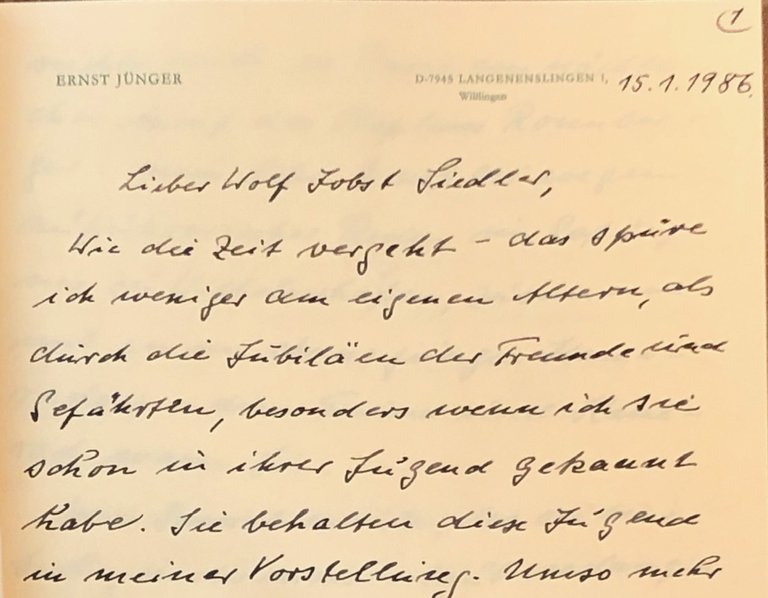 1
ERNST JÜNGER
D-7945 LANGENENSLINGEN 1, 15.1.1986.
Wilflingen
Lieber Wolf Jobst Siedler,
Wie die Zeit vergeht - das spüre
ich weniger am eigenen Altern, als
durch die Jubiläen der Freunde und
Gefährten, besonders wenn ich sie
schon in ihrer Jugend gekannt
habe. Sie behalten diese Jugend
in meiner Vorstellung. Umso mehr